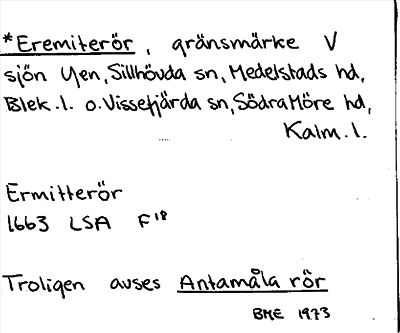 *Eremiterör, gränsmärke V
sjön Yen, Sillhövda sn, Medelstads hd,
Blek. l. o. Vissefjärda sn, Södra Möre hd,
Kalm. l.
Ermitterör
1663 LSA F18
Troligen avses Antamåla rör
BME 1973